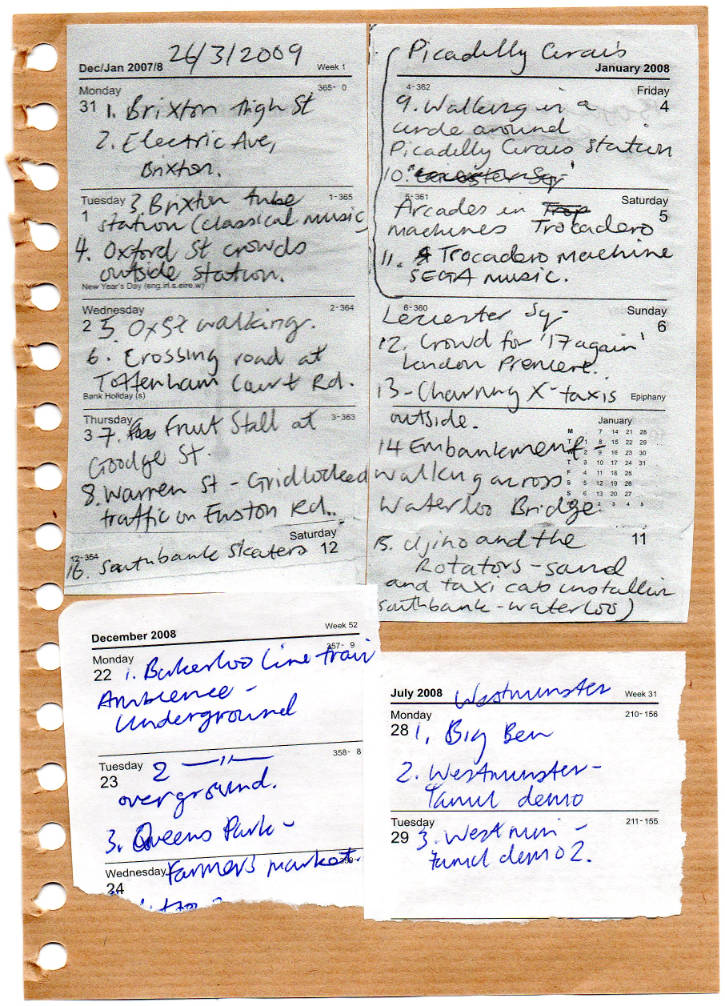 26/3/2009
Dec/Jan 2007/8 Week 1
Monday 365- 0
31 1. Brixton High St
2. Electric Ave,
Brixton.
Tuesday 3. Brixton tube 1-365
1 station (classical music
4. Oxford St crowds
outside station.
New Year's Day (eng.irl.s.eire.w)
Wednesday 2-364
2 5. Ox St walking.
6. Crossing road at
Tottenham Court Rd.
Bank Holiday (s)
Thursday 3-363
3 7. Fruit Stall at
Goodge St.
8. Warren St - Gridlocked
traffic on Euston Rd..
Saturday
12-354 12
16. Southbank Skaters
Picadilly Circuis
January 2008
4-362 Friday
9. Walking in a 4
circle around
Picadilly Circuis station
10. Leicester Sq
5-361 Saturday
Arcades in Trop 5
machines Trocadero
11. Trocadero machine
SEGA MUSIC.
6-360 Sunday
Leciester Sq- 6
12. Crowd for '17 again'
London Premiere.
13 - Charring X - taxis Epiphany
outside.
January
M 7 14 21 28
T 1 8 15 22 29
W 2 9 16 23 30
T 3 10 17 24 31
F 4 11 18 25
S 5 12 19 26
S 6 13 20 27
14 Embankment -
walking across
Waterloo Bridge
11
15. djino and the
Rotators - sand
and taxi cab installin
southbank - waterloo)
December 2008 Week 52
Monday 357- 9
22 1. Bakerloo Line train
Ambience -
Underground
Tuesday 358- 8
23 2 —"—
overground.
3. Queens Park -
Wednesday Farmers market.
24
July 2008 Westminster Week 31
Monday 210-156
28 1. Big Ben
2. Westminster -
Tamil demo
Tuesday 211-155
29 3. Westmin -
tamil demo 2.